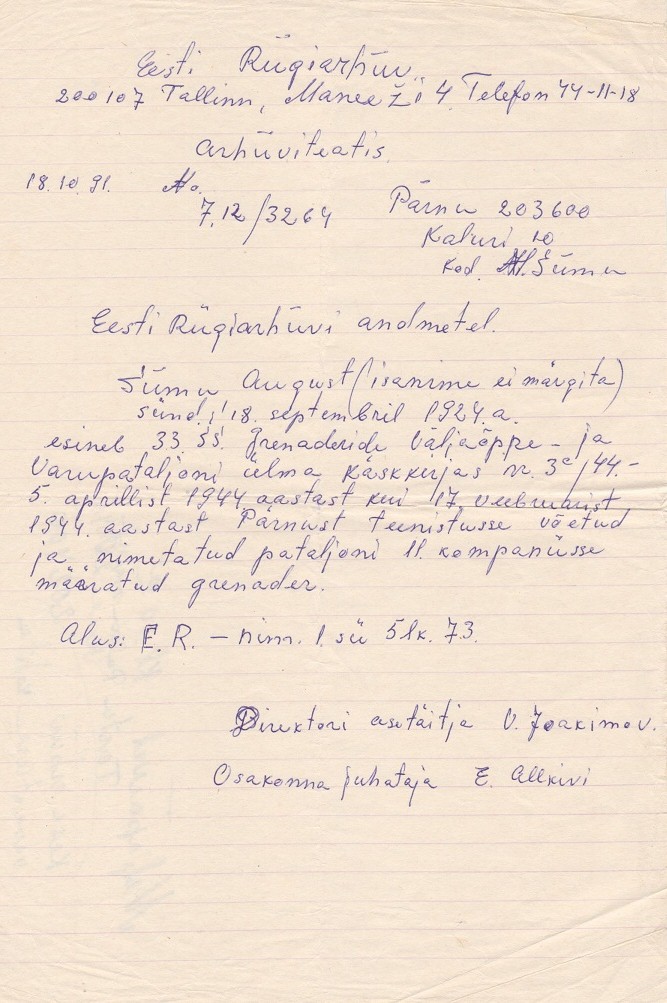 Eesti Rügiarhüv
200107 Tallinn, Maneeži 4. Telefon 44-11-18
Arhüviteatis.
18.10.91. No.
7.12/3264 Pärnu 203600
Kaluri 10
kod. H. Sümu
Eesti Rügiarhüvi andmetel.
Sümu August (isanime ei märgita)
sünd. 18. septembril 1924 a.
esineb 33 SS grenaderide väljaõppe - ja
Varupataljoni ülma käskkirjas nr. 3c/44.-
5. aprillist 1944 aastast kui 17. veebruarist
1944. aastast Pärnust teenistusse võetud
ja nimetatud pataljoni 11. kompanüsse
määratud grenader.
Alus: E.R. - nim. 1. sü 5 lk. 73.
Direktori asetäitja V. Joakimov.
Osakonna juhataja E. Allkivi